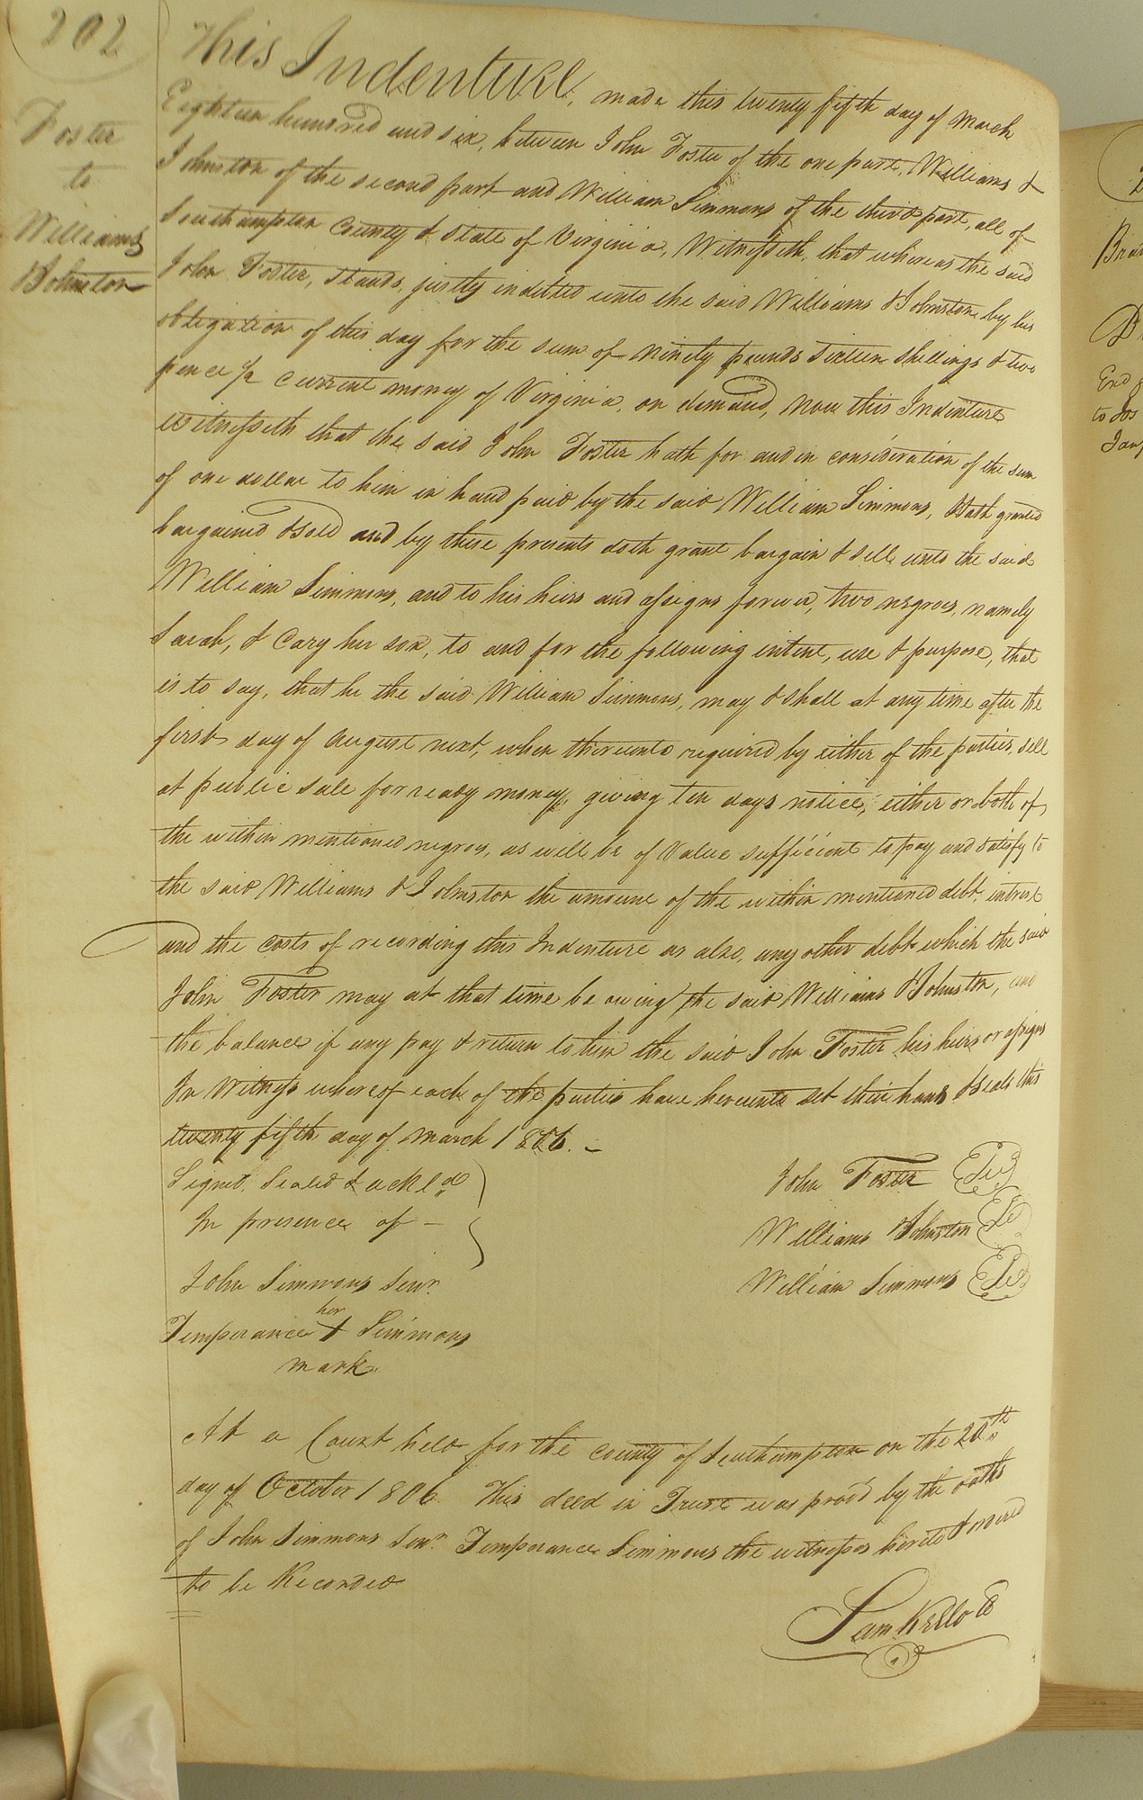 202
Foster
to
Williams
& Johnston
This Indenture, made this twenty fifth day of March
Eighteen hundred and six, between John Foster of the one part, Williams &
Johnston of the second part and William Simmons of the third part, all of
Southampton County & State of Virginia, Witnesseth, that whereas the said
John Foster, stands, justly indebted unto the said Williams & Johnston by his
obligation of this day for the sum of ninety pounds sixteen shillings & two
pence ½ current money of Virginia, on demand, Now this Indenture
witnesseth that the said John Foster hath for and in consideration of the sum
of one dollar to him in hand paid by the said William Simmons, Hath granted
bargained & sold and by these presents doth grant bargain & sell unto the said
William Simmons, and to his heirs and assigns forever, two negroes, namely
Sarah, & Cary her son, to and for the following intent, use & purpose, that
is to say, that he the said William Simmons, may & shall at any time after the
first day of August next, when thereunto required by either of the parties, sell
at public sale for ready money, giving ten days notice, either or both of
the within mentioned negroes, as will be of Value sufficient to pay and satisfy to
the said Williams & Johnston the amount of the within mentioned debt, intrest
and the costs of recording this Indenture as also, any other debt which the said
John Foster may at that time be owing the said Williams & Johnston, and
the balance if any pay & return to him the said John Foster his heirs or assigns
In Witness whereof each of the parties have hereunto set their hands & seals this
twenty fifth day of March 1806. –
Signd. Sealed & ackld
In presence of –
John Simmons Senr.
Temperance her + Simmons
mark
John Foster
Williams & Johnston
William Simmons
At a Court held for the county of Southampton on the 20th
day of October 1806 This deed in Trust was prov'd by the oaths
of John Simmons Senr. Temperance Simmons the witnesses hereto & ordered
to be Recorded
Sam Kello C
End
to Jos